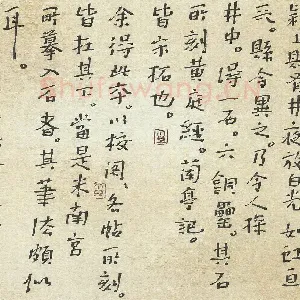 潁上縣井夜放白光如虹亘
天。縣令異之。乃令人探
井中。得一石。六銅罍。其石
所刻黃庭經。蘭亭記。
皆宋拓也。
余得此本。以校閱各帖所刻。
皆在其下。當是米南宮
所摹入石者。其筆法頗似
耳。